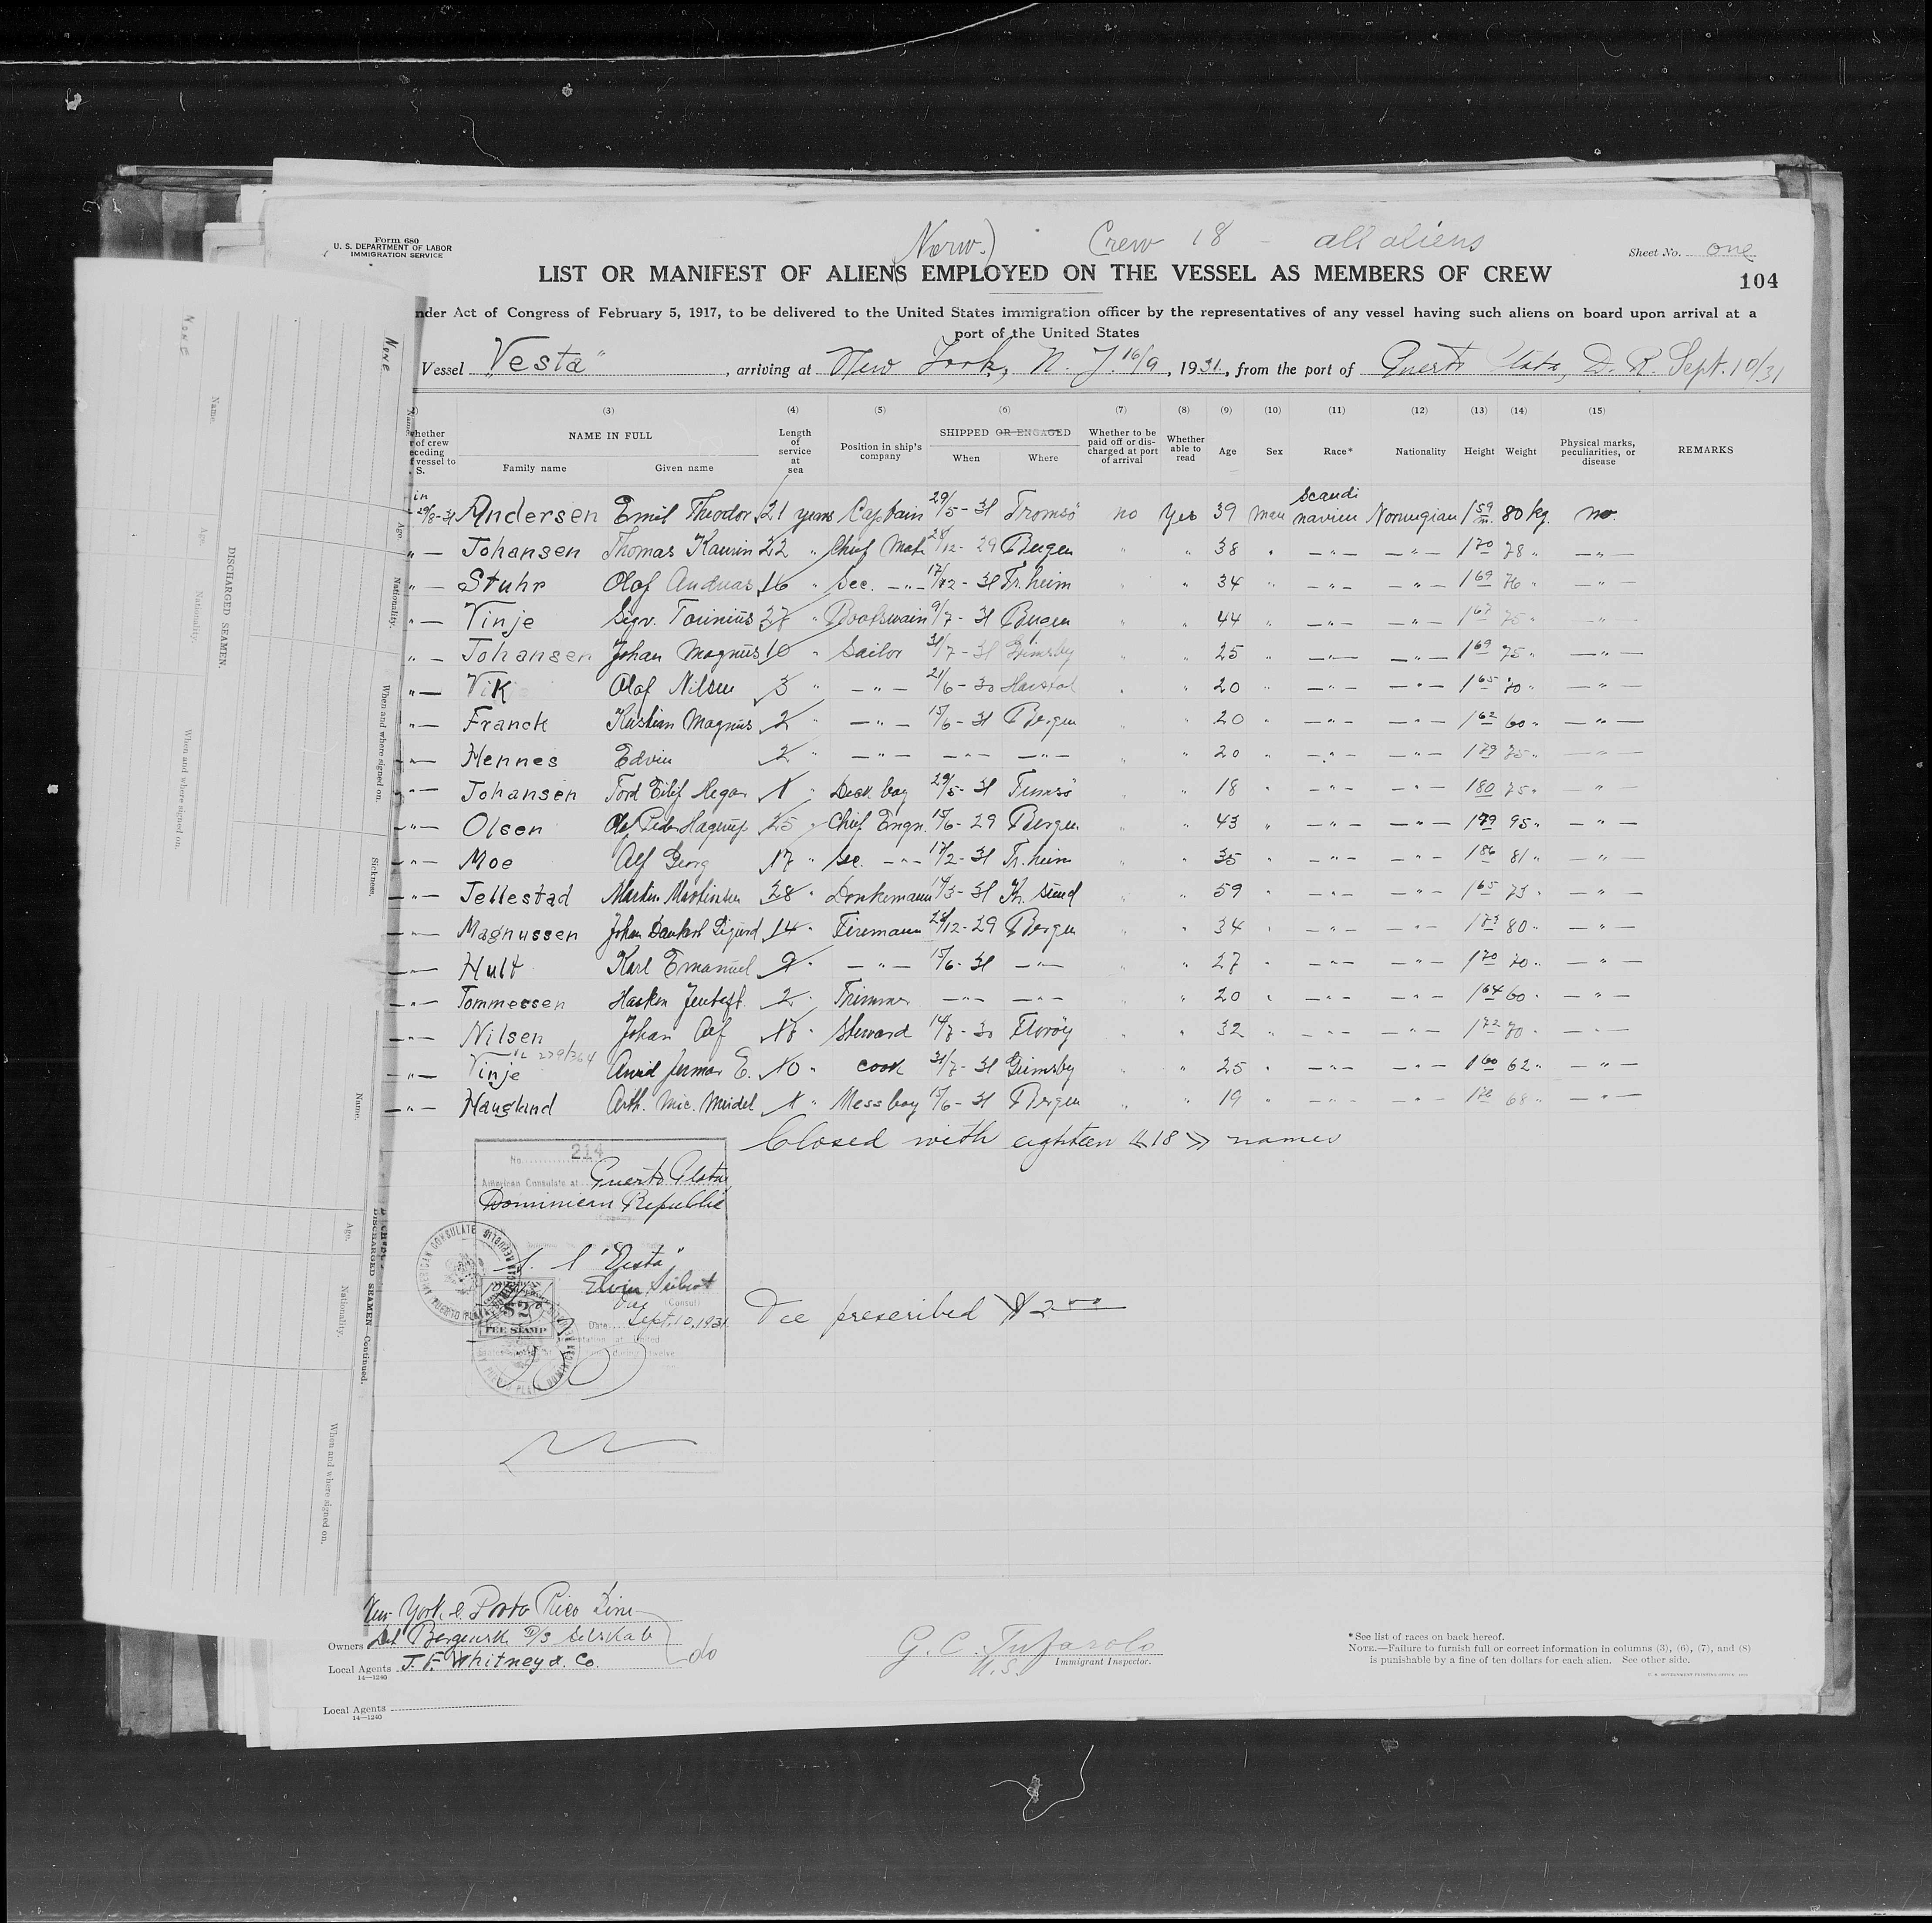 Norw.) Crew 18 - all aliens
Form 680
U. S. DEPARTMENT OF LABOR
IMMIGRATION SERVICE
Sheet No. one
LIST OR MANIFEST OF ALIENS EMPLOYED ON THE VESSEL AS MEMBERS OF CREW
104
nder Act of Congress of February 5, 1917, to be delivered to the United States immigration officer by the representatives of any vessel having such aliens on board upon arrival at a
port of the United States
Vessel "Vesta" , arriving at New York, N. Y. 16/9, 1931, from the port of Puerto Plata, D. R. Sept. 10/31
(3) (4) (5) (6) (7) (8) (9) (10) (11) (12) (13) (14) (15)
NAME IN FULL
Family name Given name
Length of service at sea
Position in ship's company
SHIPPED OR ENGAGED
When Where
Whether to be paid off or discharged at port of arrival
Whether able to read
Age Sex Race* Nationality Height Weight
Physical marks, peculiarities, or disease
REMARKS
in 29/8-31 Andersen Emil Theodor 21 years Captain 29/5-31 Tromsö no Yes 39 man Scandinavien Norwegian 1 59 m. 80 kg. no.
" — Johansen Thomas 22 " Chief Mate 12-29 Bergen " " 38 " —"— —"— 1 70 78 " —"—
" — Stuhr Olaf Andreas 16 " Sec. —"— 31 Tr.heim " " 34 " —"— —"— 1 69 76 " —"—
" — Vinje Sigv. 37 " Bootswain 9/7-31 Bergen " " 44 " —"— —"— 1 67 75 " —"—
" — Johansen Johan Magnus 10 " Sailor 31/7-31 Grimsby " " 25 " —"— —"— 1 69 75 " —"—
" — Vik Olaf Nilsen 3 " —"— 21/6-30 " " 20 " —"— —"— 1 65 70 " —"—
" — Franck Kristian Magnus 2 " —"— 15/6-31 Bergen " " 20 " —"— —"— 1 62 60 " —"—
—"— Hennes Edvin 2 " —"— —"— —"— " " 20 " —"— —"— 1 79 75 " —"—
—"— Johansen Tord Eilif 1 " Deck boy 29/5-31 Tromsö " " 18 " —"— —"— 1 80 75 " "
—"— Olsen Olaf Peder Hagerup 25 " Chief Engn. 15/6-29 Bergen " " 43 " —"— —"— 1 79 95 " —"—
—"— Moe Alf Georg 17 " Sec. —"— 17/2-31 Tr.heim " " 35 " —"— —"— 1 86 81 " —"—
—"— Jellestad Martin Martinsen 38 " Donkemann 31 Kr. sund " " 59 " —"— —"— 1 65 73 " —"—
—"— Magnussen Johan Sigurd 14 " Firemann 12-29 Bergen " " 34 " —"— —"— 1 73 80 " —"—
—"— Hult Karl Emanuel 9 " —"— 15/6-31 —"— " " 27 " —"— —"— 1 70 70 " —"—
—"— Tommessen Haakon 2 " Trimmer —"— —"— " " 20 " —"— —"— 1 64 60 " —"—
—"— Nilsen Johan Alf 17 " Steward 14/7-30 Floröy " " 32 " —"— —"— 1 72 70 " —"—
279/364
—"— Vinje E. 10 " cook 31/7-31 Grimsby " " 25 " —"— —"— 1 60 62 " —"—
—"— Haugland Arth. Mic. Meidel 1 " Messboy 15/6-31 Bergen " " 19 " —"— —"— 1 76 68 " —"—
Closed with eighteen «18» names
No. 214
American Consulate at Puerto Plata
Dominican Republic
S. S "Vesta"
Elvin Seibert
Consul
Date Sept. 10, 1931
FEE STAMP
Fee prescribed $2.00
New York & Porto Rico Line
Owners Det Bergenske D/S Selskab
Local Agents J. F. Whitney & Co.
do
14—1240
G. C. Tufarolo
U.S. Immigrant Inspector.
*See list of races on back hereof.
NOTE.—Failure to furnish full or correct information in columns (3), (6), (7), and (8)
is punishable by a fine of ten dollars for each alien. See other side.
Local Agents
14—1240
NONE
NONE
DISCHARGED SEAMEN.
Name. Age. Nationality. When and where signed on. Sickness.
DISCHARGED SEAMEN—Continued.
Name. Age. Nationality. When and where signed on.